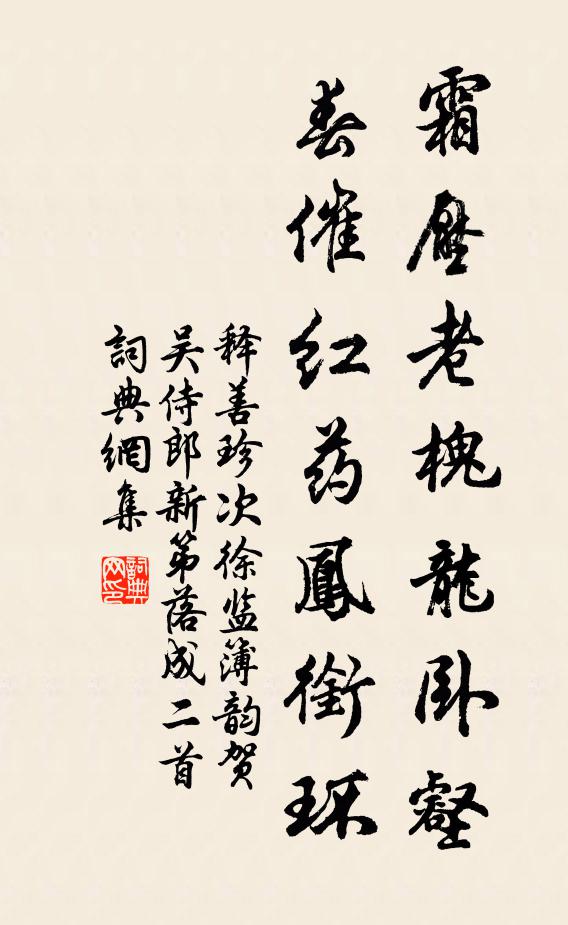 霜壓老槐龍卧壑
春催红药鳳銜环
释善珍次徐监簿韵贺
吴侍郎新第落成二首
詞典網集
詞典网印